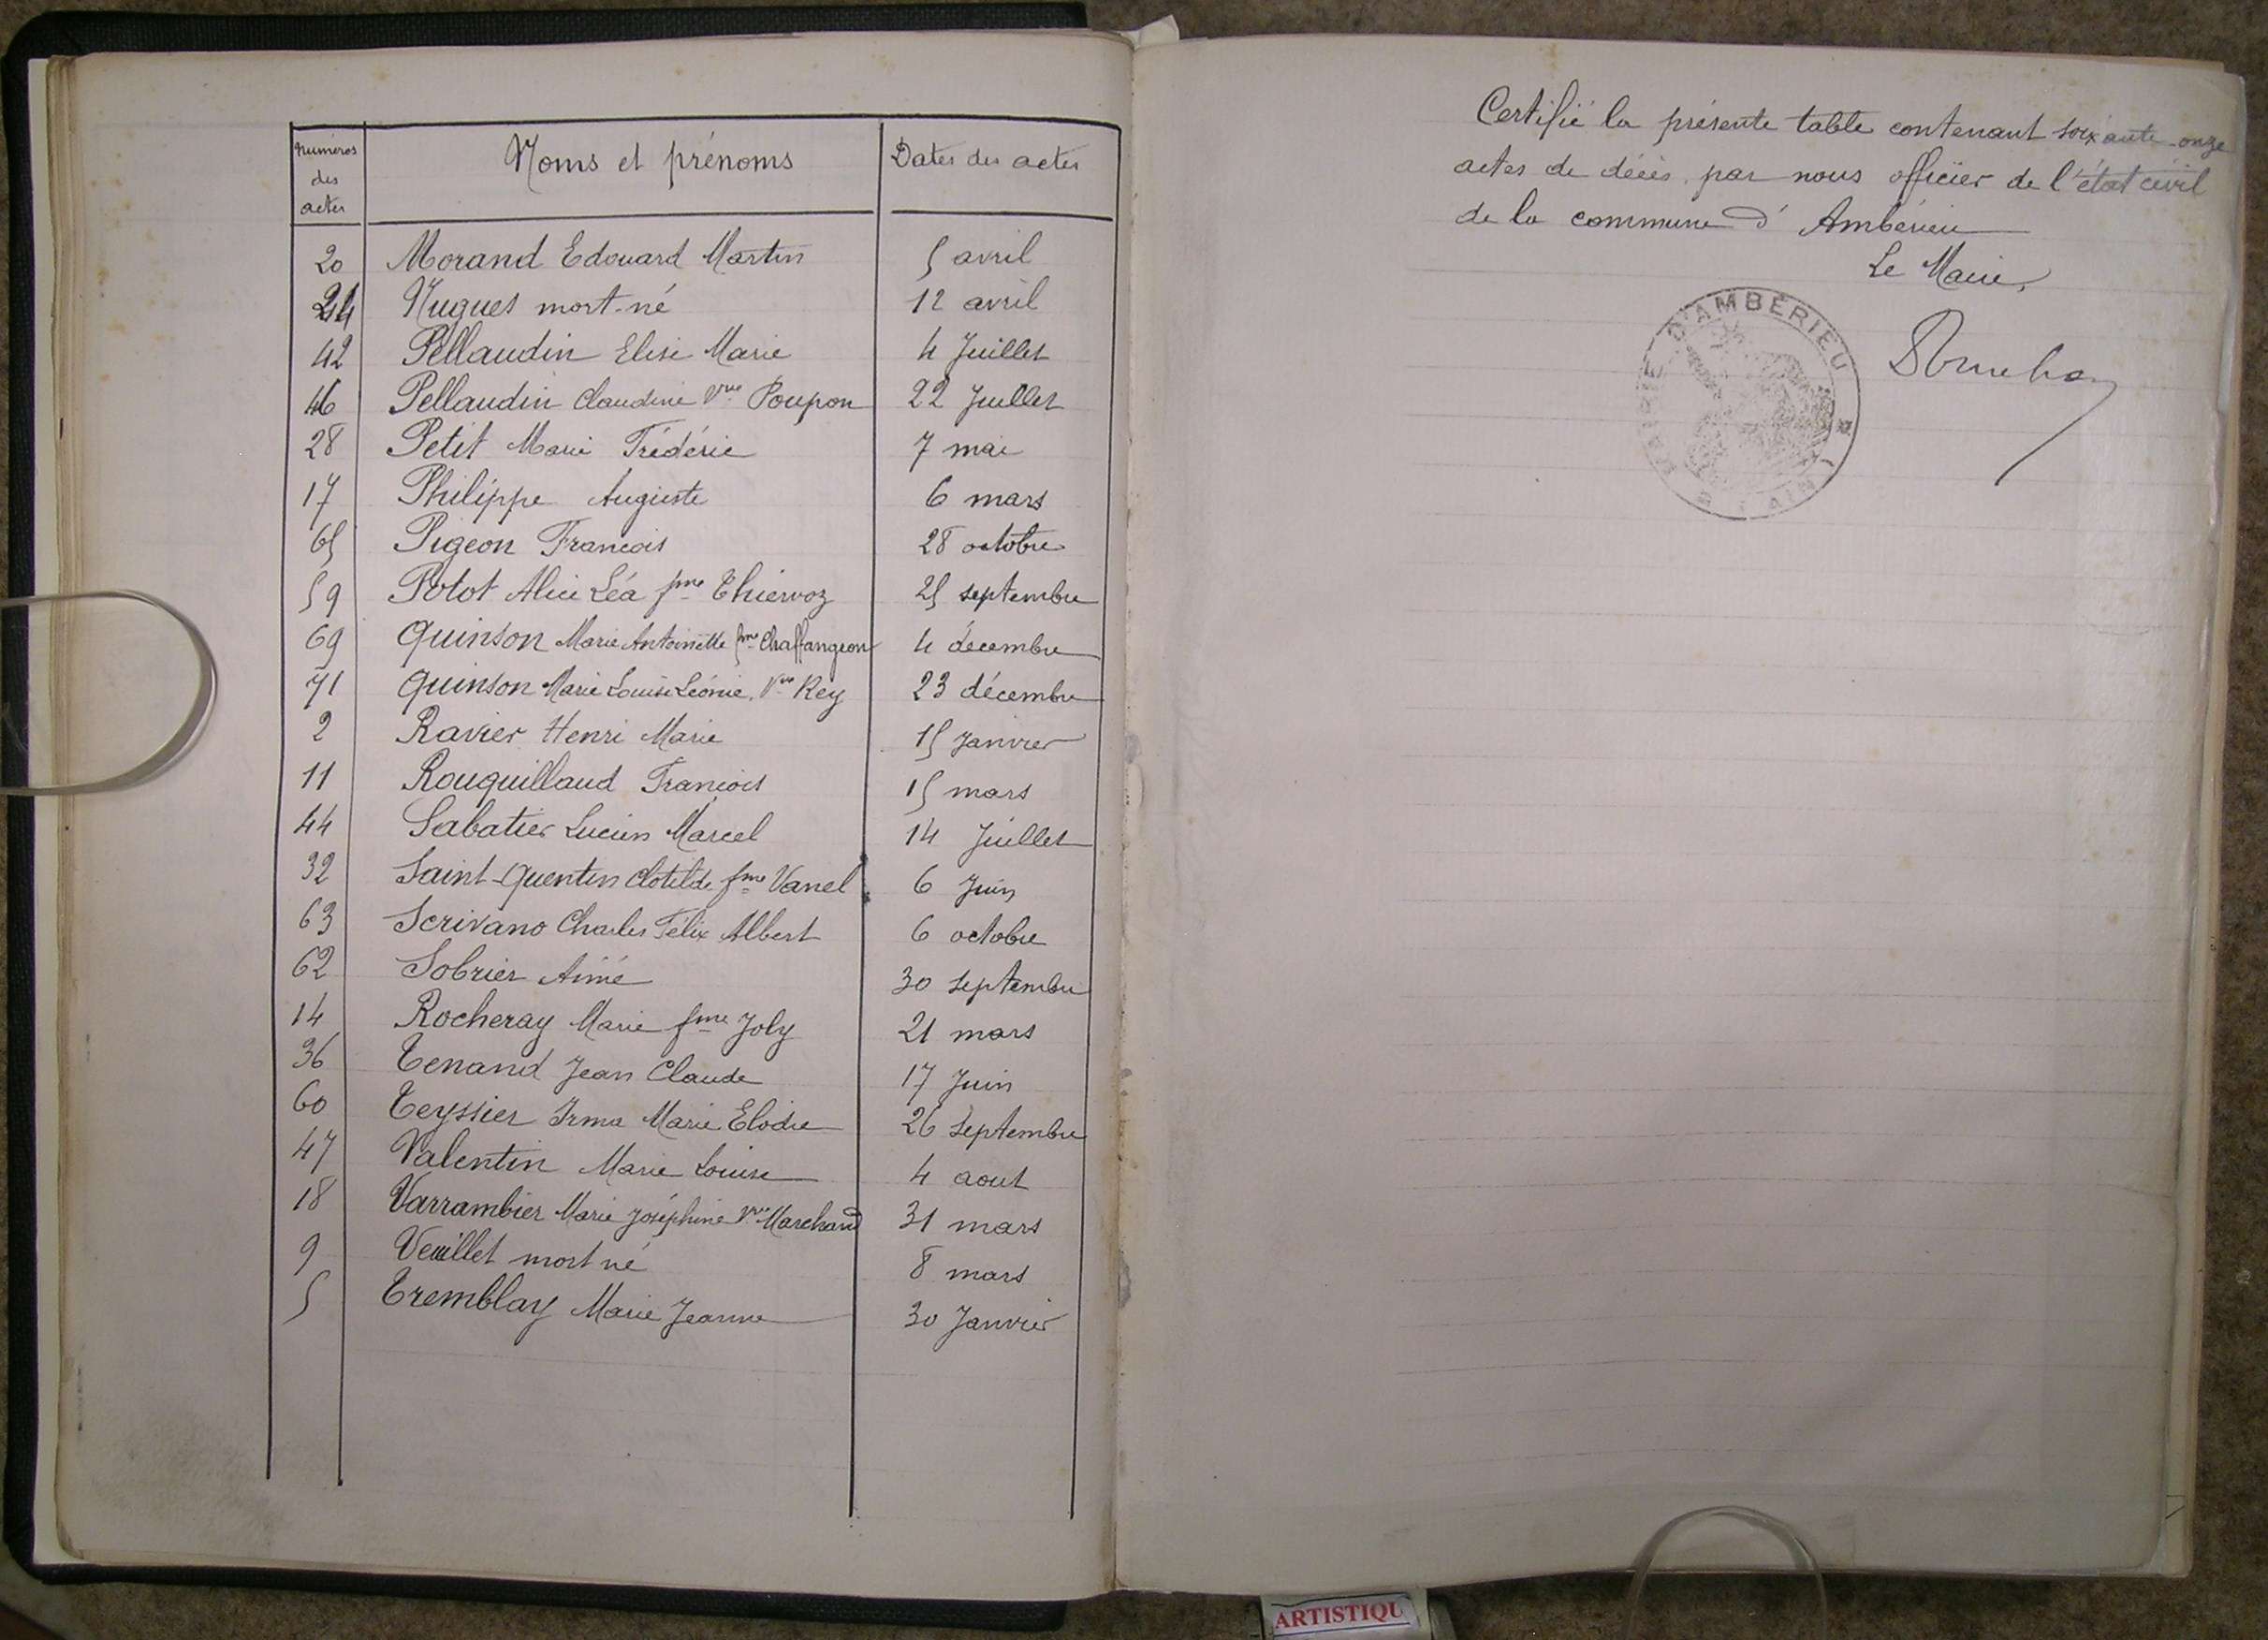 Numéros des actes | Noms et prénoms | Dates des actes
20 Morand Edouard Martin 5 avril
24 Nugues mort-né 12 avril
42 Pellaudin Elise Marie 4 Juillet
46 Pellaudin Claudine Vve Poupon 22 Juillet
28 Petit Marie Frédéric 7 mai
17 Philippe Auguste 6 mars
65 Pigeon Francois 28 octobre
59 Potot Alice Léa fme Thiervoz 25 septembre
69 Quinson Marie Antoinette fme Chaffangeon 4 décembre
71 Quinson Marie Louise Léonie, Vve Rey 23 décembre
2 Ravier Henri Marie 15 Janvier
11 Rouquillaud Francois 15 mars
44 Sabatier Lucien Marcel 14 Juillet
32 Saint-Quentin Clotilde fme Vanel 6 Juin
63 Scrivano Charles Félix Albert 6 octobre
62 Sobrier Aimé 30 septembre
14 Rocheray Marie fme Joly 21 mars
36 Tenand Jean Claude 17 Juin
60 Teyssier Irma Marie Elodie 26 septembre
47 Valentin Marie Louise 4 aout
18 Varrambier Marie Joséphine Vve Marchand 31 mars
9 Veuillet mort né 8 mars
5 Tremblay Marie Jeanne 30 Janvier
Certifié la présente table contenant soixante-onze
actes de décès, par nous officier de l'état civil
de la commune d'Ambérieu
Le Maire,
MAIRIE D'AMBÉRIEU
(AIN)
ARTISTIQU